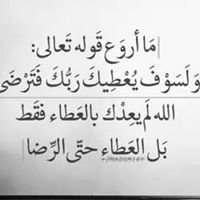 ما أروَع قَوله تَعالى:
وَلَسَوْفَ يُعْطِيكَ رَبُّكَ فَتَرْضَى
الله لَم يعِدْك بالعَطاء فقَط
بَل العَطاء حتّى الرِّضا
/MADSMIRY